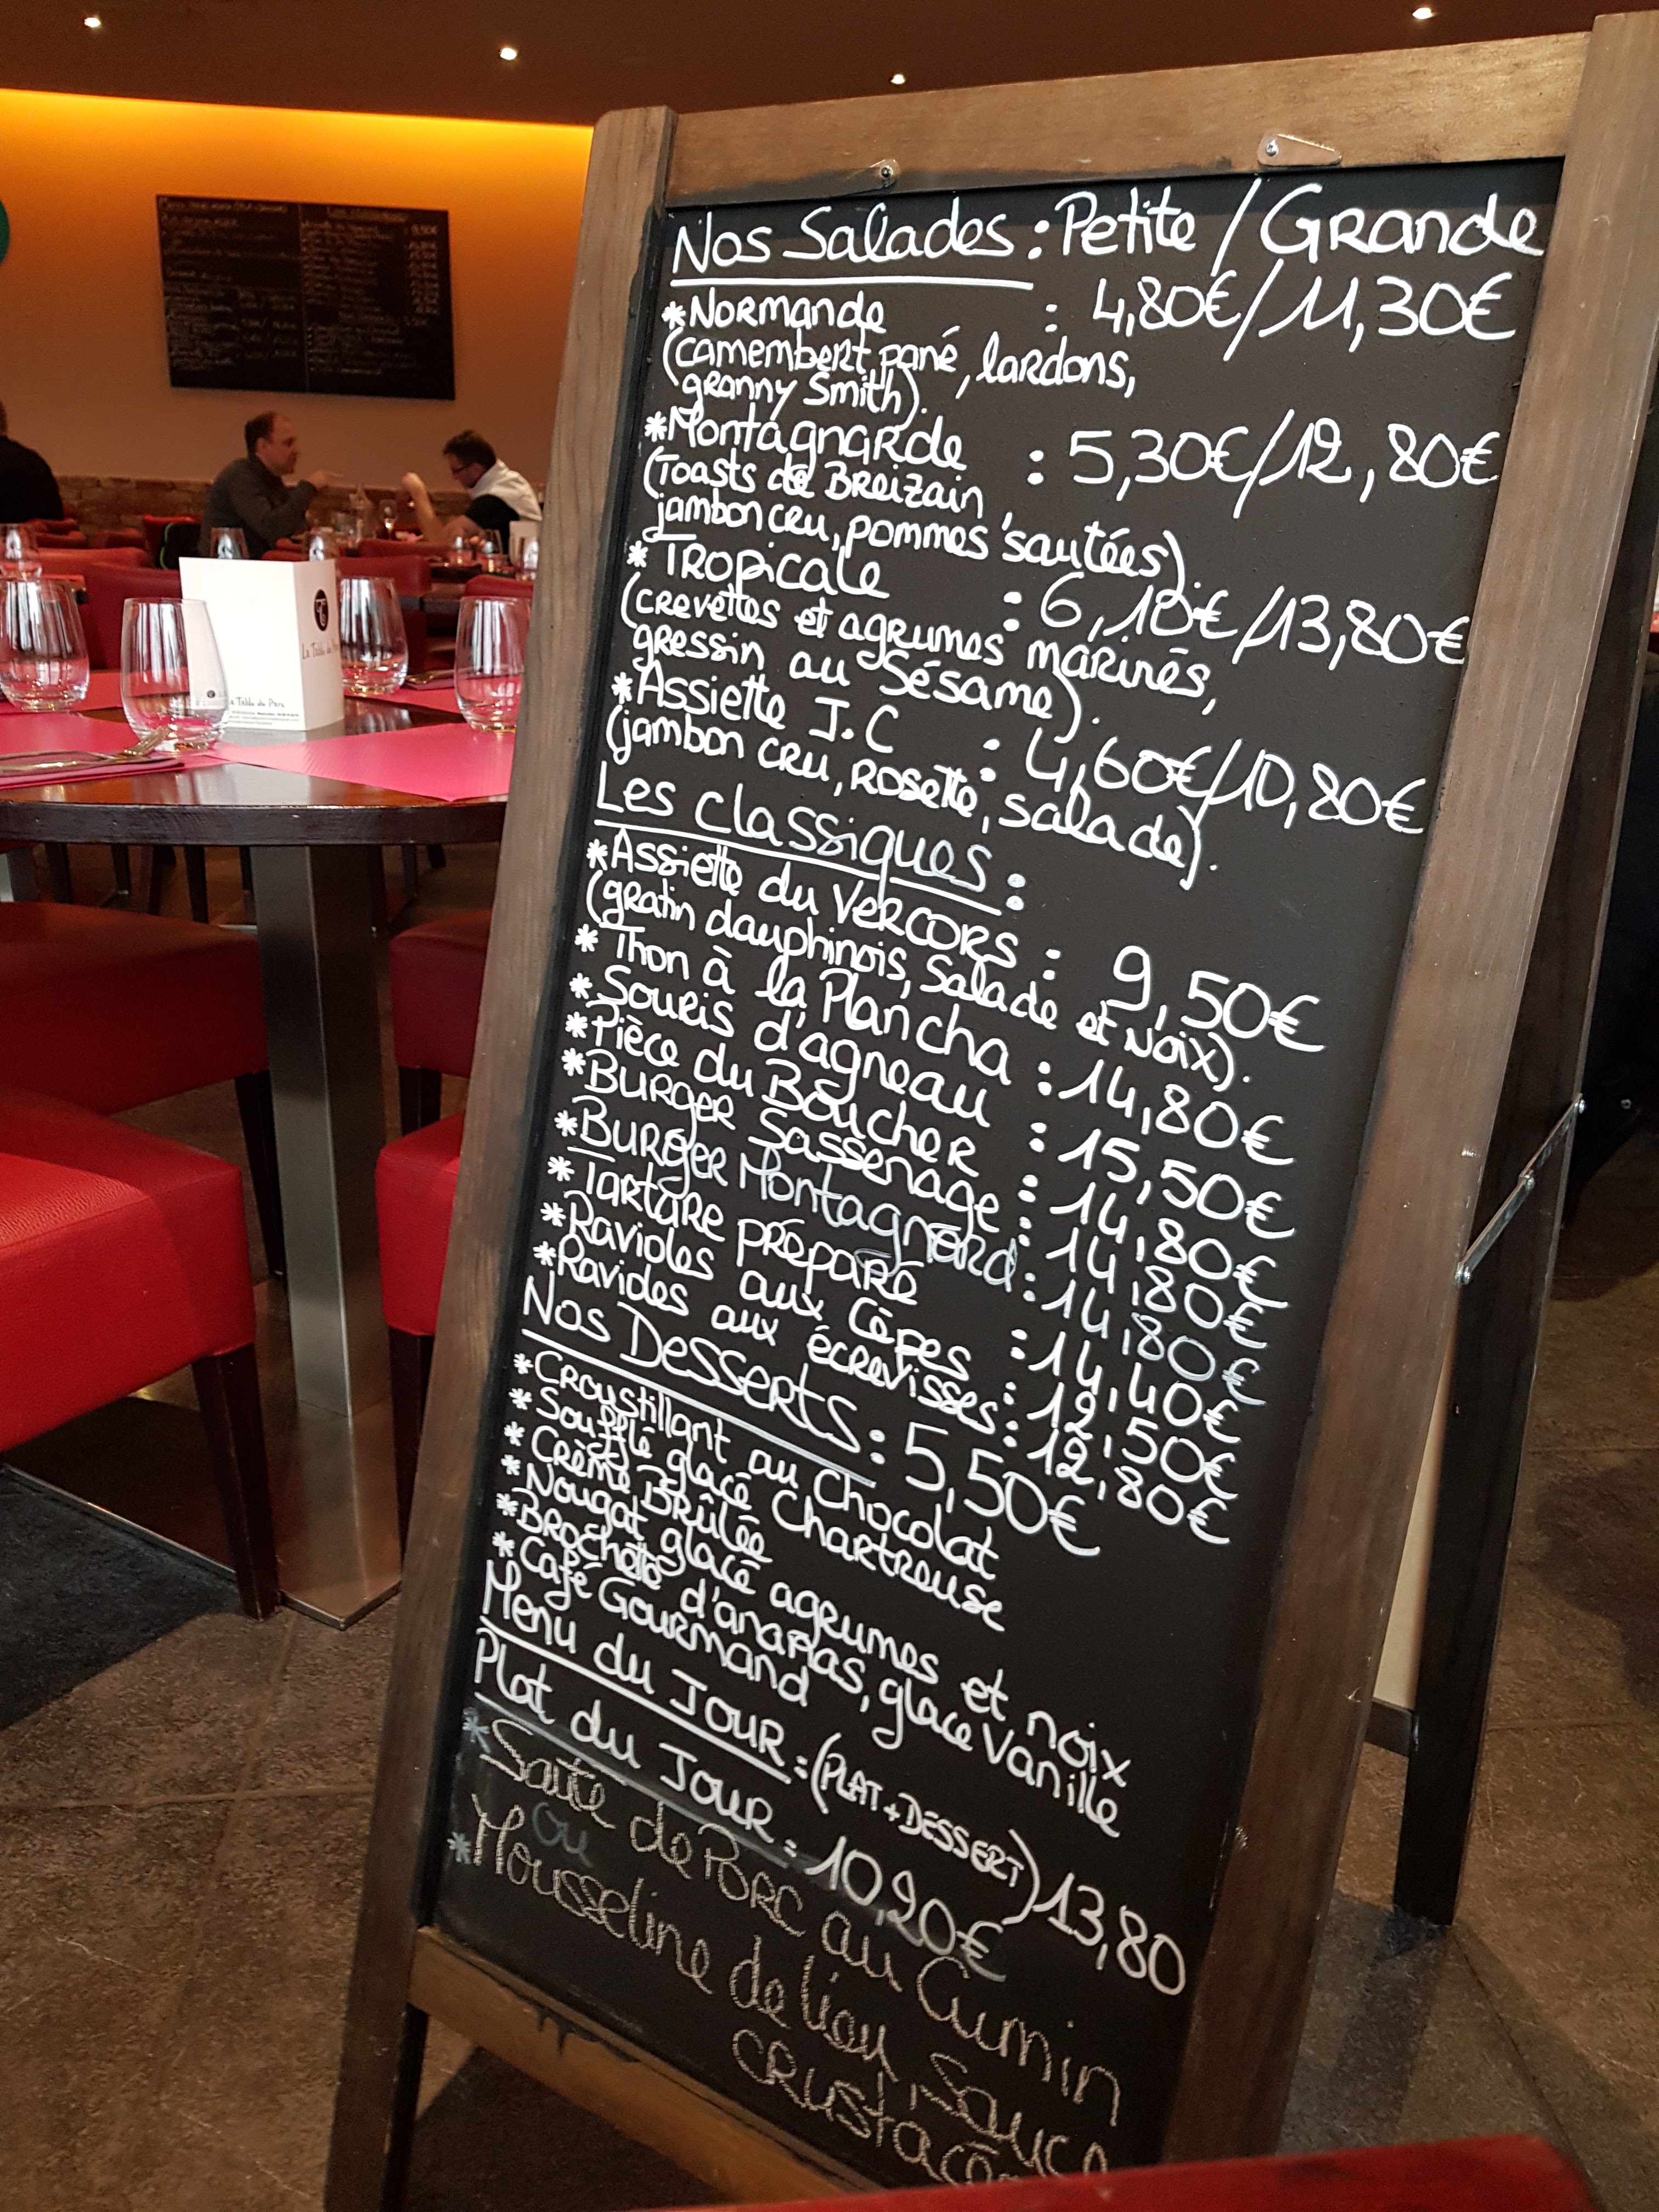 Nos Salades : Petite / Grande
*Normande : 4,80€/11,30€
(camembert pané, lardons,
granny Smith).
*Montagnarde : 5,30€/12,80€
(Toasts de Breizain,
jambon cru, pommes sautées).
*Tropicale : 6,10€/13,80€
(crevettes et agrumes marinés,
gressin au Sésame).
*Assiette J.C : 4,60€/10,80€
(jambon cru, rosette, salade).
Les classiques :
*Assiette du Vercors : 9,50€
(gratin dauphinois, Salade et Noix).
*Thon à la Plancha : 14,80€
*Souris d'agneau : 15,50€
*Pièce du Boucher : 14,80€
*Burger Sassenage : 14,80€
*Burger Montagnard : 14,80€
*Tartare préparé : 14,40€
*Ravioles aux Cèpes : 12,50€
*Ravioles aux écrevisses : 12,80€
Nos Desserts : 5,50€
*Croustillant au Chocolat
*Soufflé glacé Chartreuse
*Crème Brûlée
*Nougat glacé agrumes et noix
*Brochette d'ananas, glace Vanille
*Café Gourmand
Menu du Jour : (Plat + Dessert) 13,80
Plat du Jour : 10,20€
*Sauté de Porc au Cumin
ou
*Mousseline de lieu, Sauce
crustacé
La Table du Parc
La Table du Parc